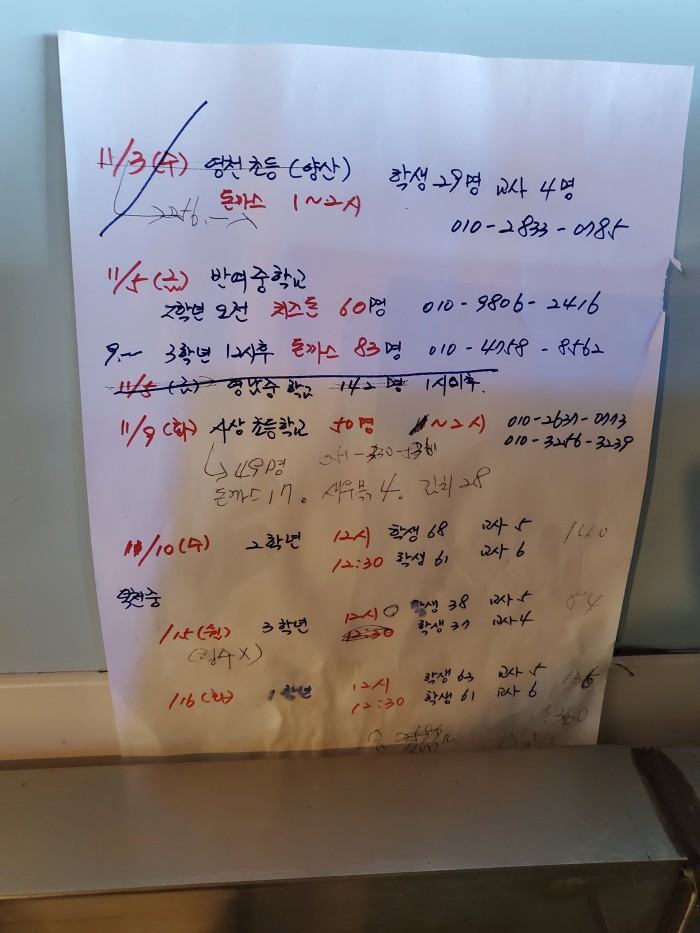 11/3(수) 영천초등(양산) 학생 29명 교사 4명
돈까스 1~2시
010-2833-0785
11/5(금) 반여중학교
2학년 오전 치즈돈 60명 010-9806-2416
3학년 12시후 돈까스 83명 010-4758-8562
11/5(금) 영남중학교 142명 1시이후.
11/9(화) 사상초등학교 50명 ~2시 010-2637-0773
010-3256-3239
↳ 49명
돈까스 17。 새우볶 4。 김치 28
11/10(수) 2학년 12시 학생 68 교사 5 140
12:30 학생 61 교사 6
/15(월) 3학년 12시 학생 38 교사 5 84
12:30 학생 37 교사 4
/16(화) 1학년 12시 학생 63 교사 5
12:30 학생 61 교사 6
360